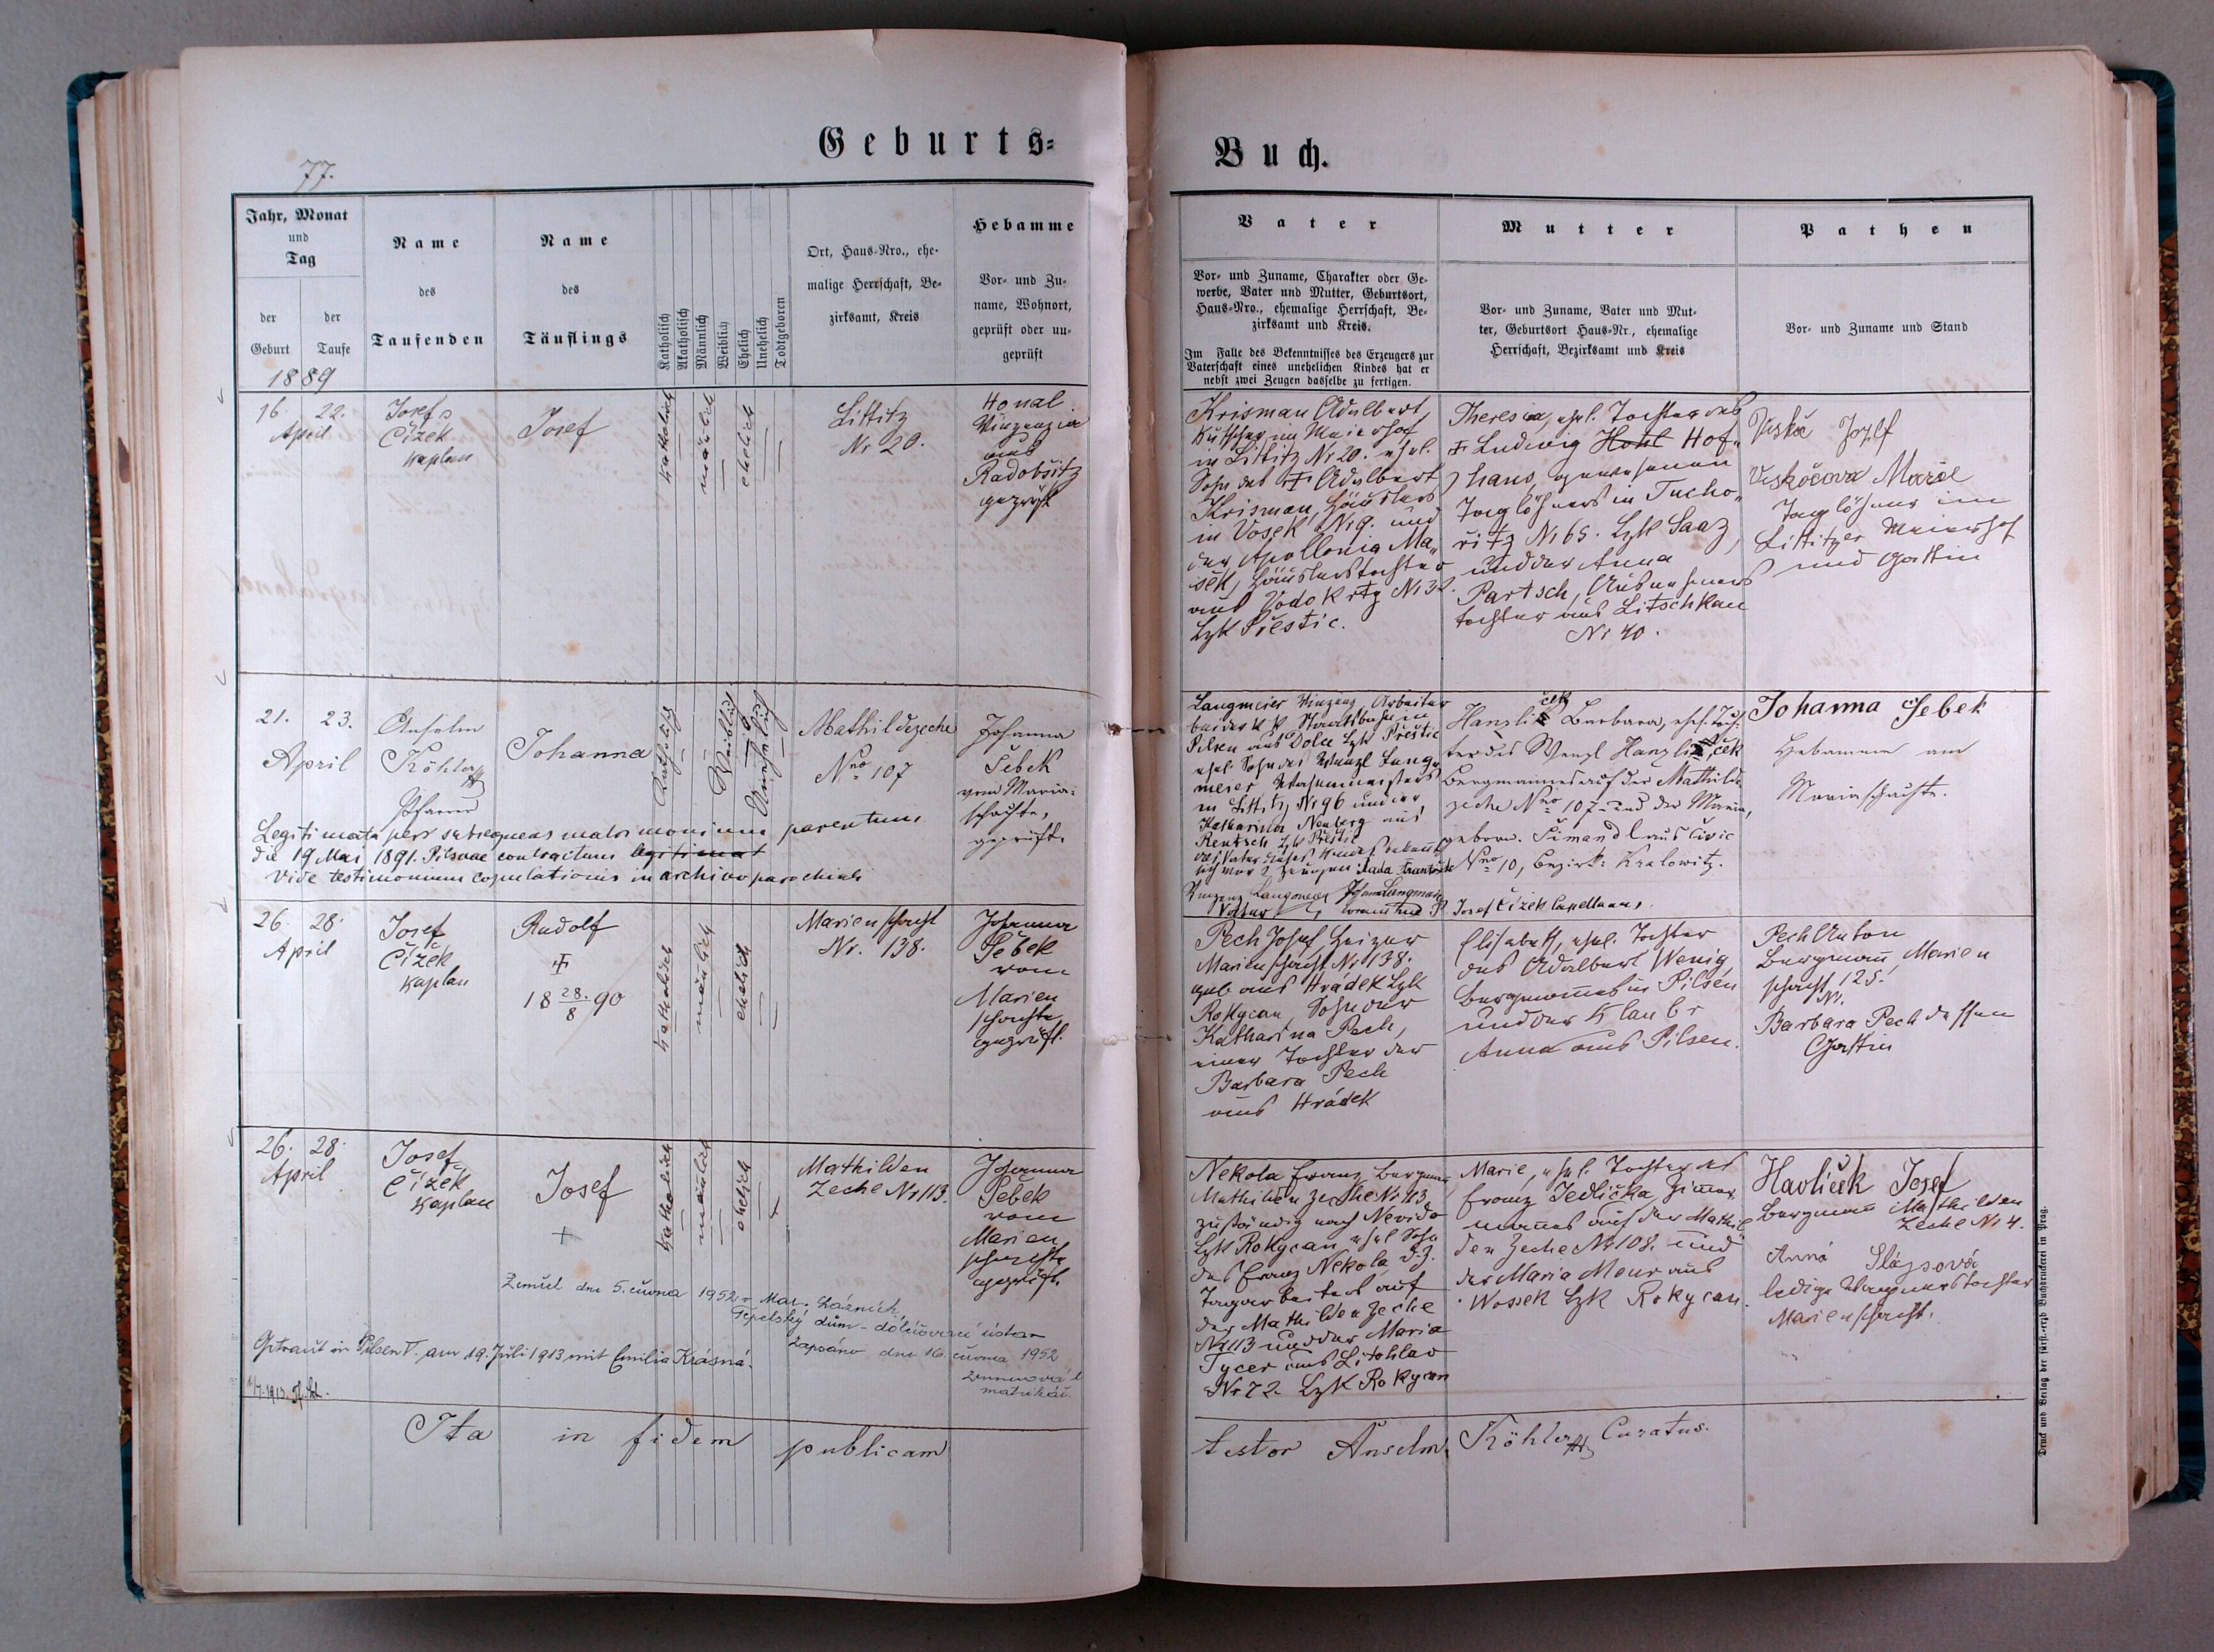 Geburts=
Buch.
77.
Jahr, Monat
und
Tag
der
Geburt
der
Taufe
1889
Name
des
Taufenden
Name
des
Täuflings
Katholisch
Akatholisch
Männlich
Weiblich
Ehelich
Unehelich
Todtgeboren
Ort, Haus-Nro., ehe-
malige Herrschaft, Be-
zirksamt, Kreis
Hebamme
Vor- und Zu-
name, Wohnort,
geprüft oder un-
geprüft
Vater
Vor- und Zuname, Charakter oder Ge-
werbe, Vater und Mutter, Geburtsort,
Haus-Nro., ehemalige Herrschaft, Be-
zirksamt und Kreis.
Im Falle des Bekenntnisses des Erzeugers zur
Vaterschaft eines unehelichen Kindes hat er
nebst zwei Zeugen dasselbe zu fertigen.
Mutter
Vor- und Zuname, Vater und Mut-
ter, Geburtsort Haus-Nr., ehemalige
Herrschaft, Bezirksamt und Kreis
Pathen
Vor- und Zuname und Stand
16. 22.
April
Josef
Čížek
Kaplan
Josef
katholisch
männlich
ehelich
Littitz
Nr 20.
Honal
Vinzenzia
aus
Radobšitz
geprüft
Krisman Adalbert,
Kutscher im Meierhof
in Littitz Nr 20. ehel.
Sohn des † Adalbert
Krisman, Häuslers
in Vosek Nr 9. und
der Apollonia Ma„
šek, Häuslerstochter
aus Vodokrtz Nr 32.
Bzk Přestic.
Theresia, ehel. Tochter des
† Ludwig Hohl Hof„
hans, gewesenen
Taglöhners in Tucho„
ritz Nr 65. Bzk Saaz,
und der Anna
Partsch, Ausnehmers
tochter aus Litschkau
Nr 40.
Josef
Marie
Taglöhner im
Littitzer Meierhof
und Gattin
21. 23.
April
Anselm
Köhler
Pfarrer
Johanna
Katholisch
Weiblich
Unehelich
Mathildezeche
Nro 107
Johanna
Šebek
vom Maria-
schachte,
geprüft.
Legitimata per subsequens matrimonium parentum
die 19 Mai 1891. Pilsnae contractum legitimat
vide testimonium copulationis in archivo parochiali
Langmeier Vinzenz Arbeiter
bei der k. k. Staatsbahn in
Pilsen aus Dolce Bzk Přestic
ehel. Sohn des Wenzl Lang„
meier
in Littitz Nr 96 und der
Katharina Neuberg aus
Rentsch Bzk Přestic
Vinzenz Langmeier
Vater
Hanzliček Barbara, ehel. Toch-
ter des Wenzl Hanzliček
Bergmannes auf der Mathilde
zeche Nro 107. und der Maria,
geborn. Šimandl aus Čivic
Nro 10, Bezirk: Kralowitz.
Josef Čížek Capellanus.
Johanna Šebek
Hebamme am
Mariaschachte.
26. 28.
April
Josef
Čížek
Kaplan
Rudolf
†
18 28./8 90
katholisch
männlich
ehelich
Marienschacht
Nr. 138.
Johanna
Šebek
vom
Marien
schachte
geprüft.
Pech Josef, Heizer
Marienschacht Nr 138.
geb. aus Hrádek Bzk
Rokycan, Sohn der
Katharina Pech,
einer Tochter der
Barbara Pech
aus Hrádek
Elisabeth, ehel. Tochter
des Adalbert Wenig
Bergmannes in Pilsen
und der Klaubr
Anna aus Pilsen.
Pech Anton
Bergmann Marien
schacht 125.
Nr.
Barbara Pech dessen
Gattin
26. 28.
April
Josef
Čížek
Kaplan
Josef
+
katholisch
männlich
ehelich
Mathilden
Zeche Nr 113.
Johanna
Šebek
vom
Marien
schachte
geprüft.
Zemřel dne 5. února 1952 v Mar. Lázních,
Tepelský dům - doléčovací ústav
Zapsáno dne 16. února 1952
matrikář.
Getraut in Pilsen V. am 19. Juli 1913 mit Emilia Krásná.
Nekola Franz Bergmann
Mathilden Zeche Nr 113
zuständig nach Nevid
Bzk Rokycan ehel Sohn
des Franz Nekola, d. Z.
Tagarbeiters auf
der Mathilden Zeche
Nr 113 und der Maria
Tycer aus Litohlav
Nr 72. Bzk Rokycan
Marie, ehel. Tochter des
Franz Jedlička, Zimmer
mannes auf der Mathil
den Zeche Nr 108. und
der Maria Mour aus
Wossek Bzk Rokycan.
Havlíček Josef
Bergmann Mathilden
Zeche Nr 4.
Anna Slájsová
ledige
Marienschacht.
Ita in fidem publicam
testor Anselm Köhler Curatus.
Druck und Verlag der fürst.-erzb. Buchdruckerei in Prag.